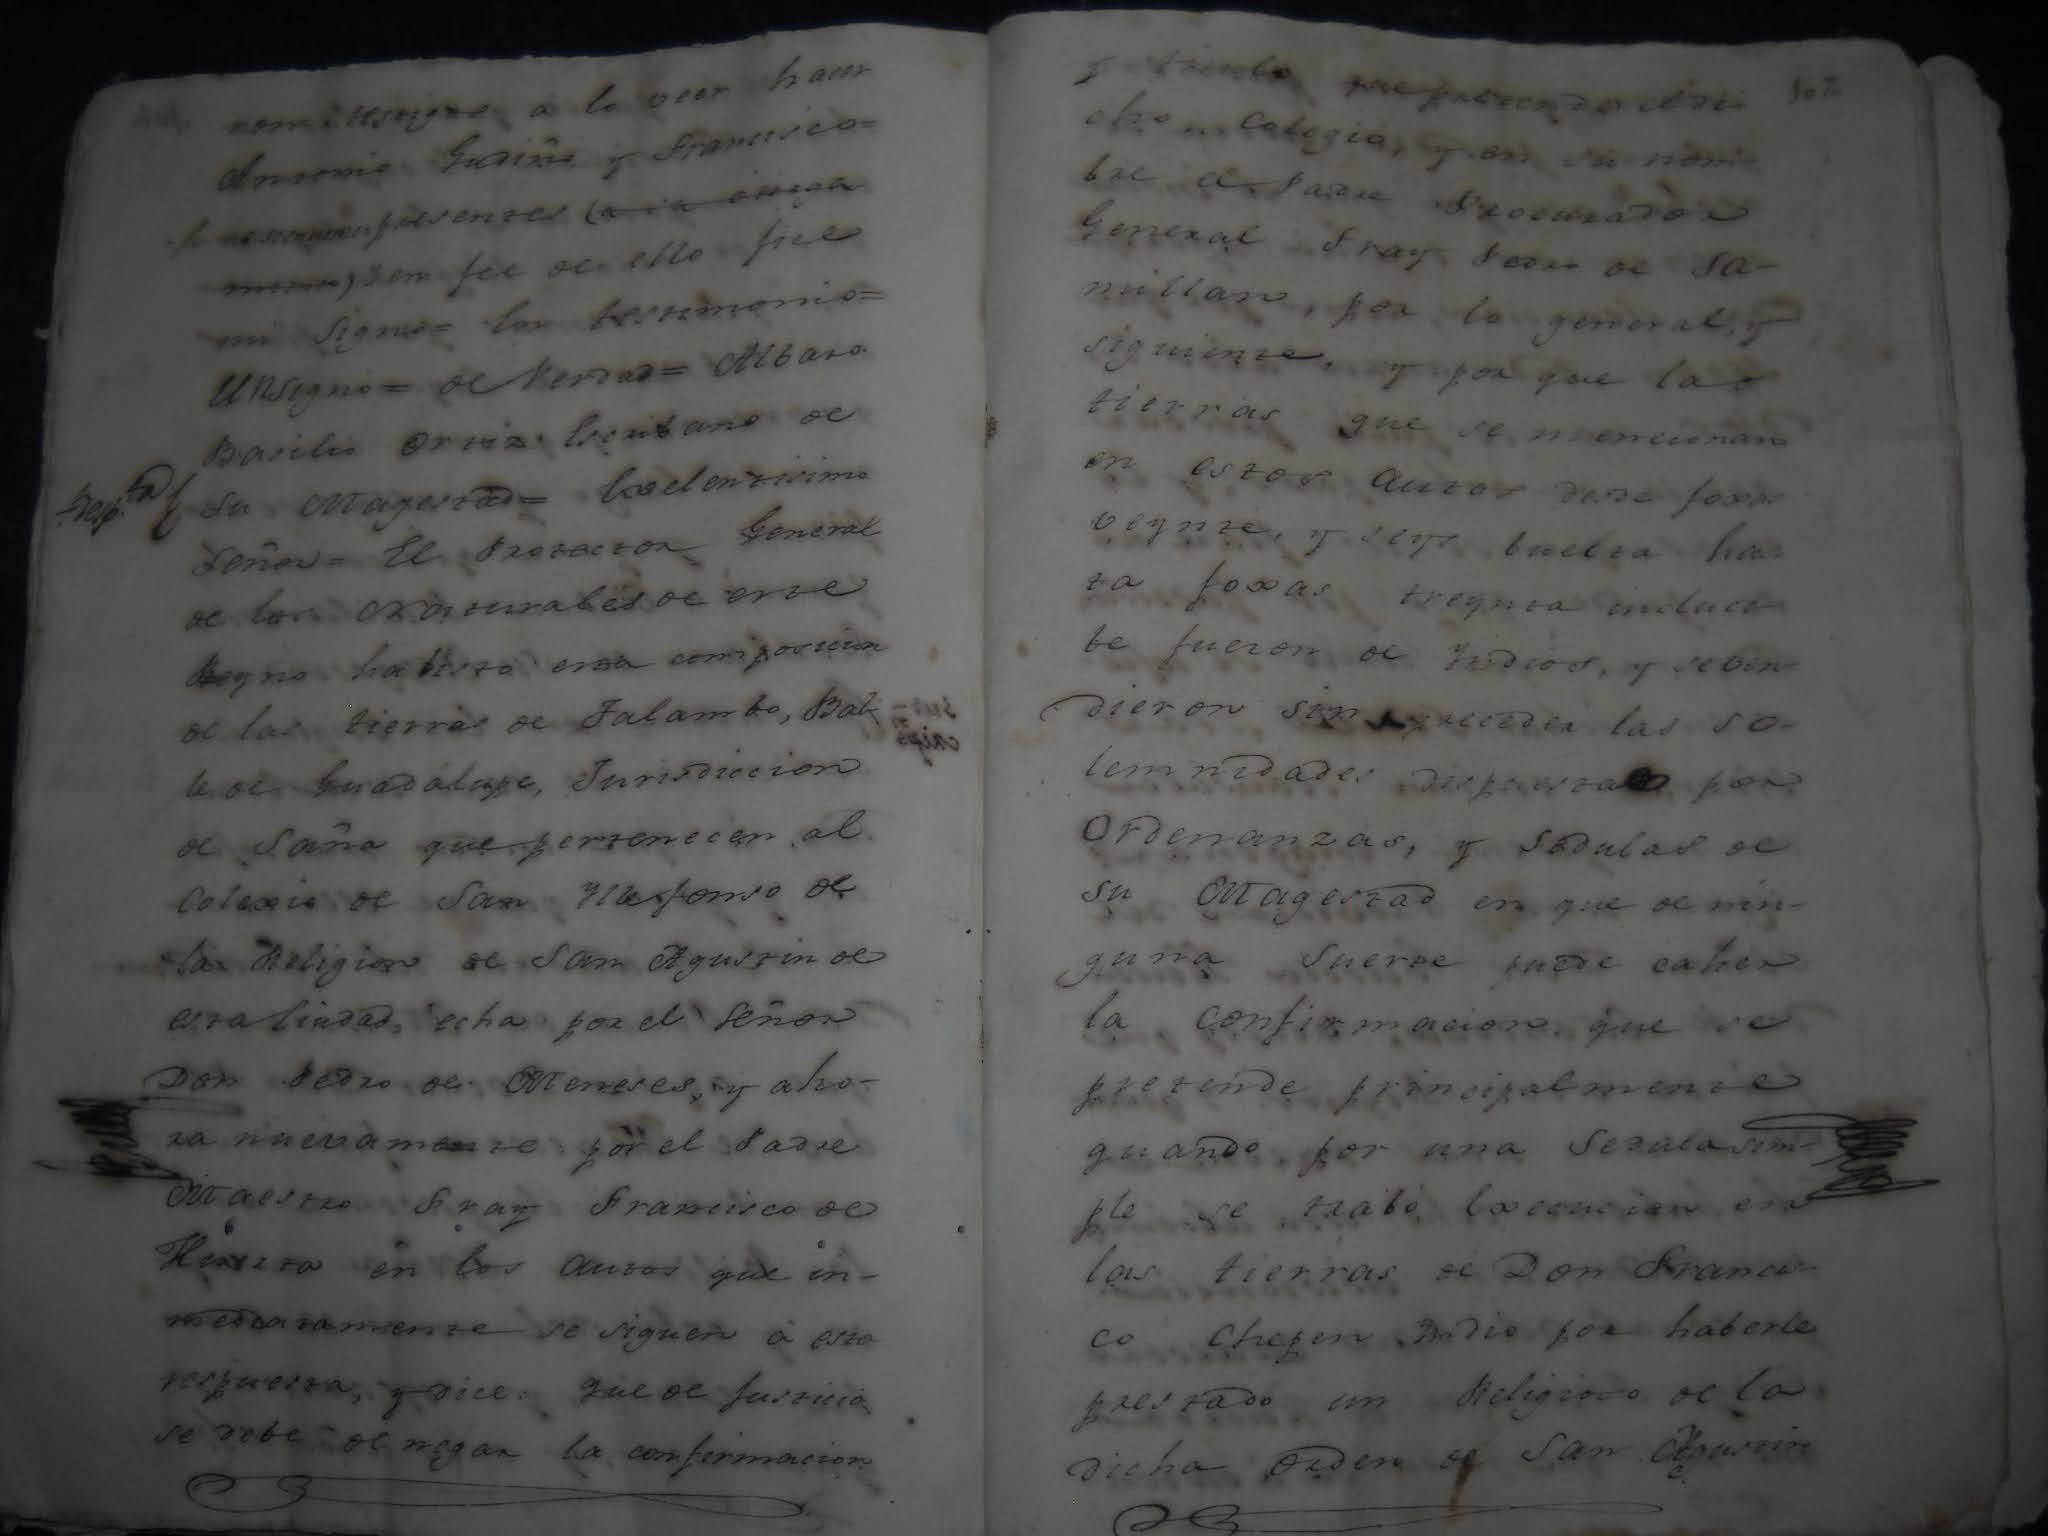 como testigos a lo veer hacer
Antonio Gudiño y Francisco=
presentes (
en fee de ello fice
mi signo= en testimonio=
Un signo= de Verdad= Albaro
Basilio Ortiz Escribano de
Resp.ta
su Magestad= Exelentisimo
señor= El Protector General
de los Naturales de este
Reyno ha visto esta composicion
de las tierras de Talambo, Bal-
le de Guadalupe, Jurisdiccion
de Saña que pertenecen al
Colexio de San Yldefonso de
la Religion de San Agustin de
esta Ciudad, echa por el Señor
Don Pedro de Meneses, y aho-
ra nuevamente por el Padre
Maestro Fray Francisco de
Huerta en los autos que in-
mediatamente se siguen a esta
respuesta, y dice: que de Justicia
se debe denegar la confirmacion
y titulo que pretende el di-
cho Colegio, y en su nom-
bre el Padre Procurador
General Fray Pedro de Sa-
millan, por lo general, y
siguiente, y por que las
tierras que se mencionan
en estos autos desde foxas
veynte, y seys buelta has-
ta foxas treynta inclusi-
be fueron de Yndios, y se ben-
dieron sin preceder las so-
lemnidades dispuestas por
Ordenanzas, y Sedulas de
su Magestad en que de nin-
guna suerte puede caher
la confirmacion que se
pretende principalmente
quando por una Sedula sim-
ple se trabó Execucion en
las tierras de Don Francis-
co Chepen Yndio por haberle
prestado un Religioso de la
dicha Orden de San Agustin